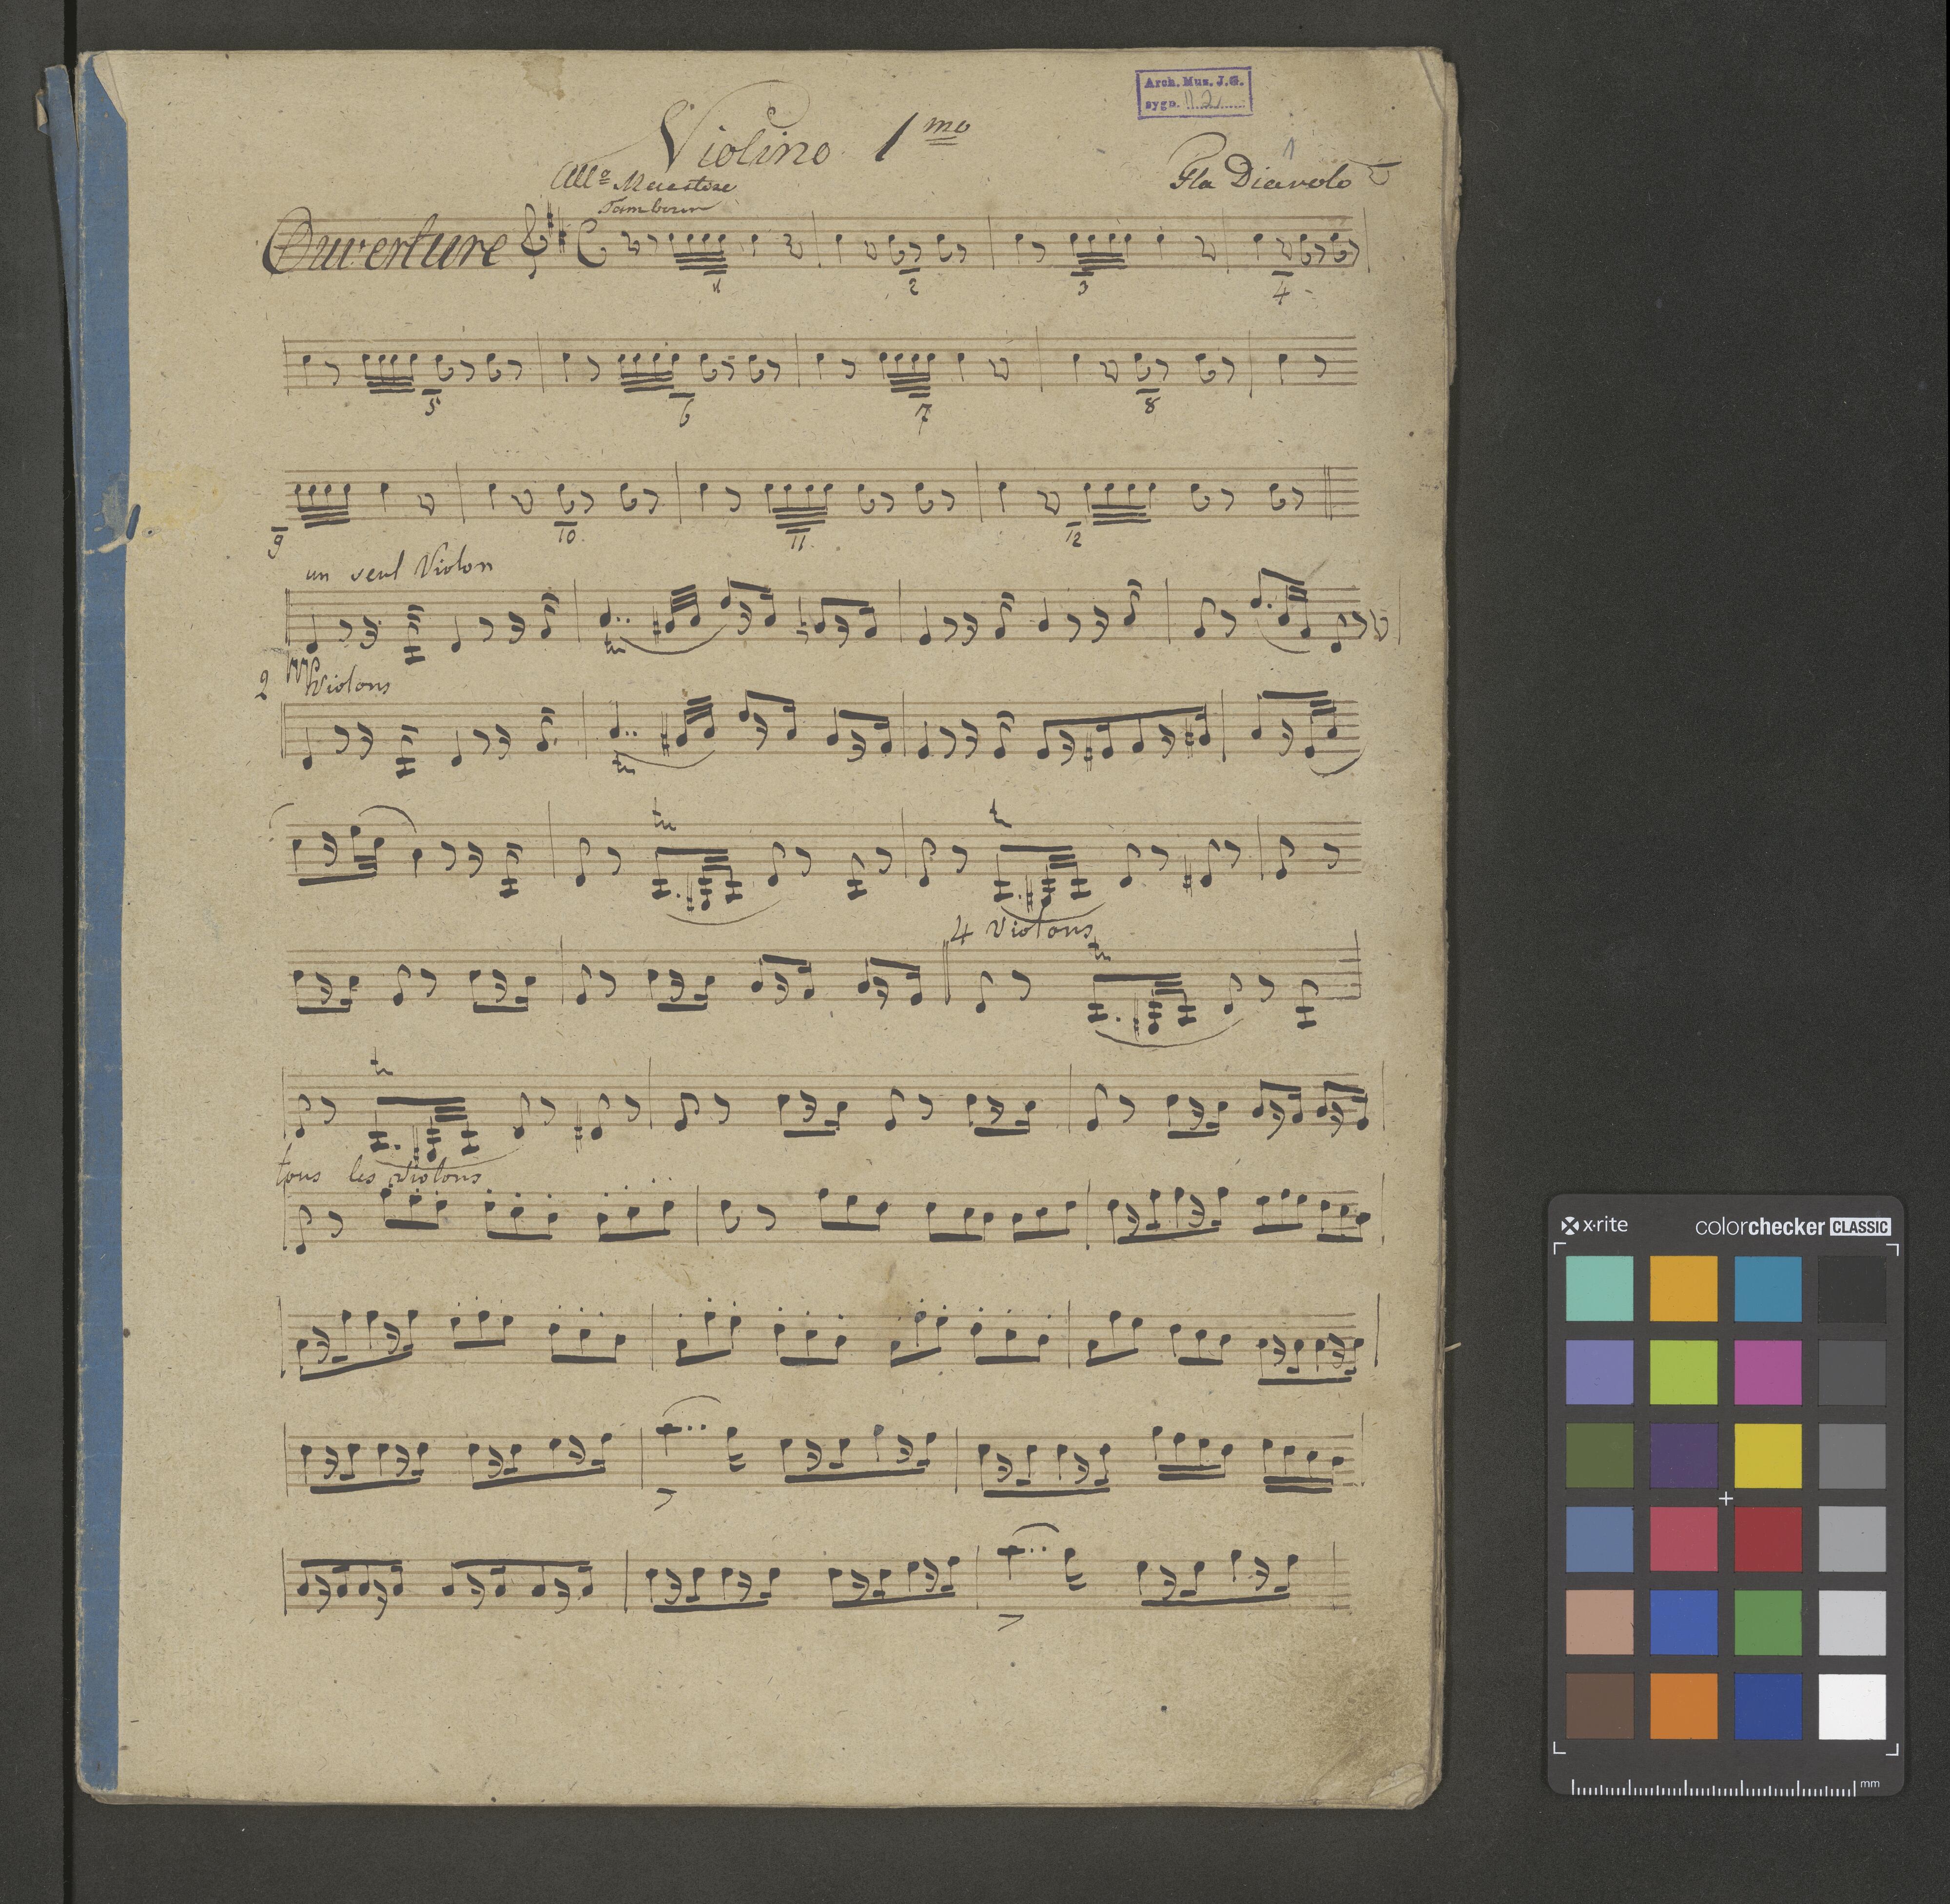 Arch. Mus. J.G.
sygn. 112
Violino 1mo
1
All° Maestose
Fla Diavolo
Tambour
Ouverture
1 2 3 4
5 6 7 8
9 10. 11. 12
un seul Violon
tr
2 Violons
tr
tr tr
4 Violons
tr
tr
tous les Violons
x·rite colorchecker CLASSIC
mm